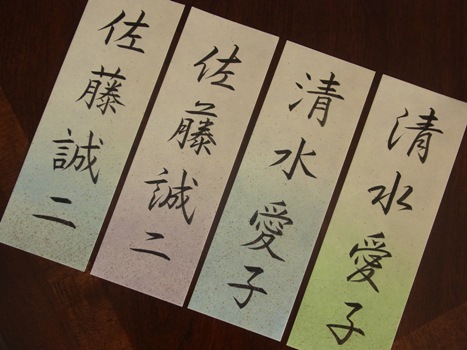 佐藤誠二
佐藤誠二
清水愛子
清水愛子